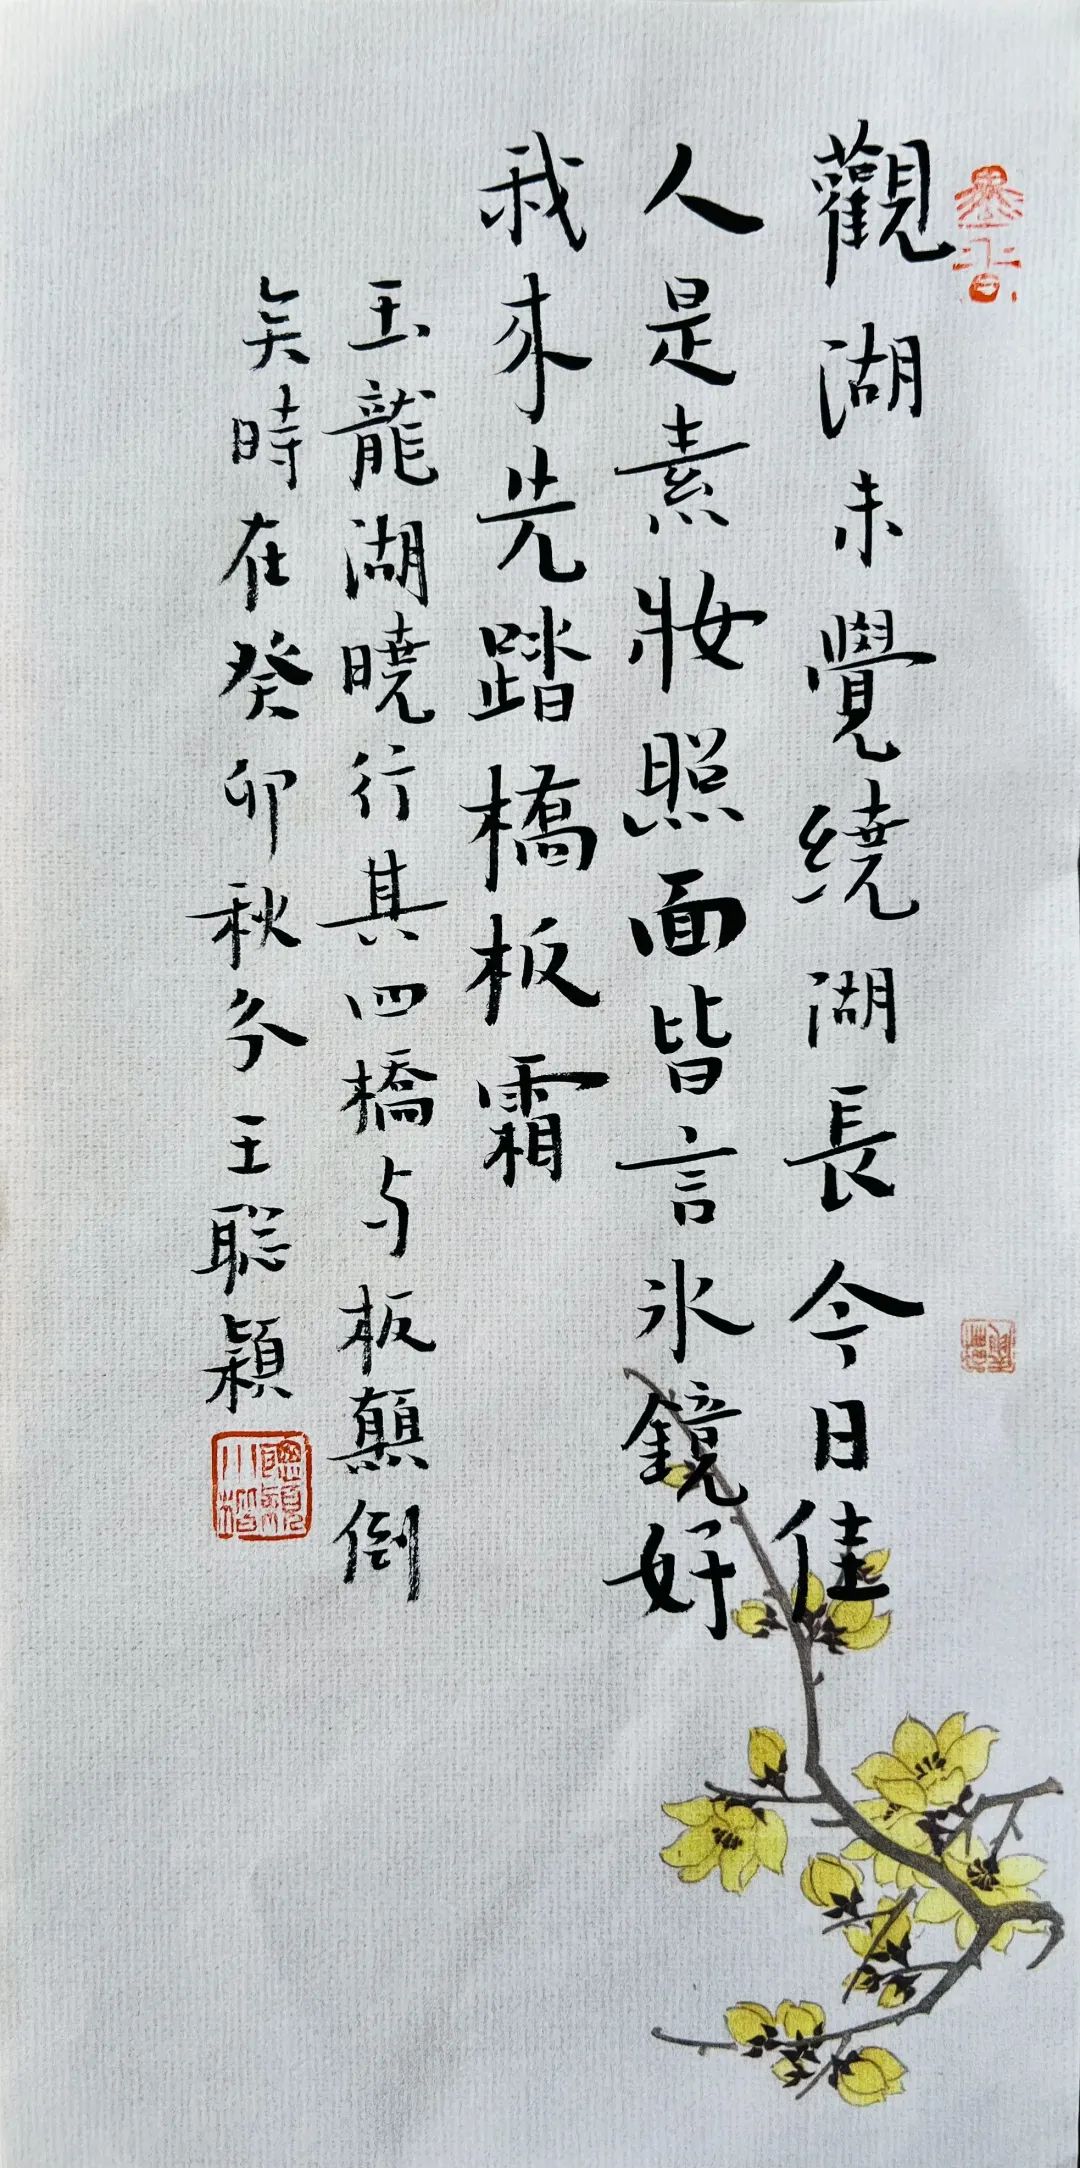 觀湖未覺繞湖長今日佳
人是素妝照面皆言氷鏡好
我來先踏橋板霜
玉龍湖曉行其四橋与板顛倒
矣時在癸卯秋分王聡穎